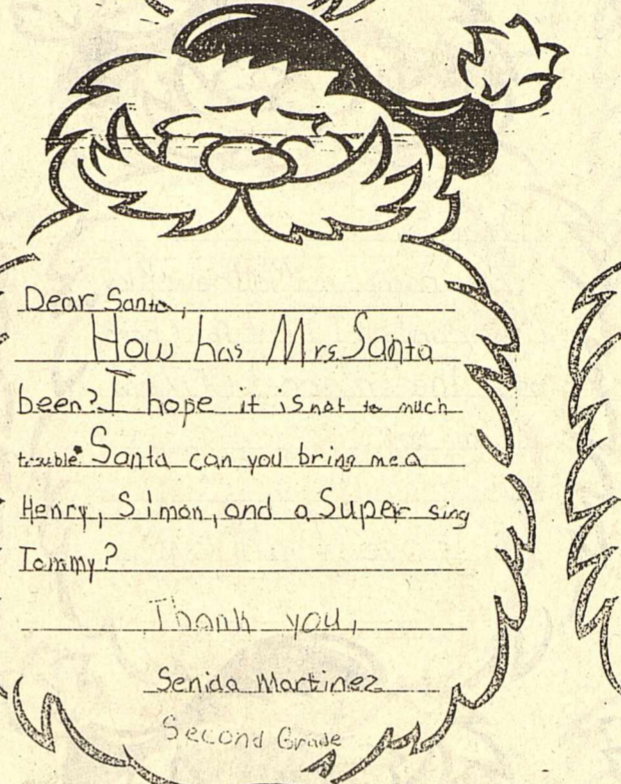 Dear Santa,
How has Mrs Santa
been? I hope it is not to much
trouble. Santa can you bring me a
Henry, Simon, and a Super sing
Tommy?
Thank you,
Senida Martinez
Second Grade